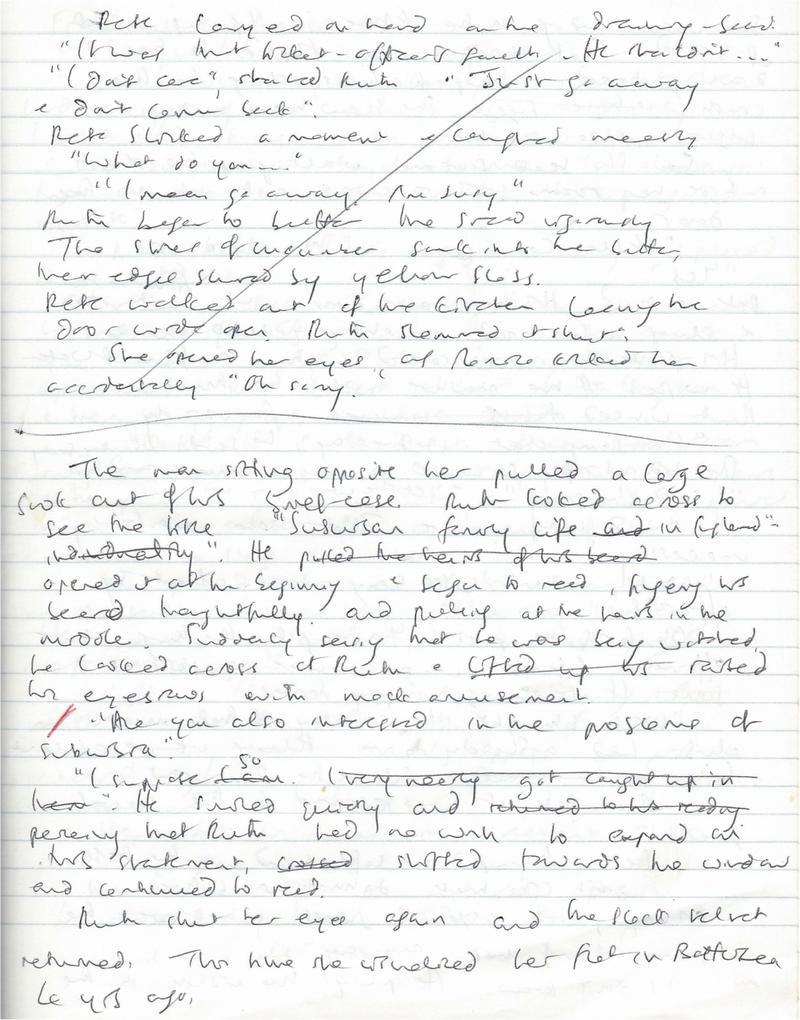 Pete carried on hard on the drawing-board.
"It was that ticket-office . He shouldn't..."
"I don't care", shouted Ruth "Just go away
& don't come back".
Pete slurked a moment & coughed meekly
"What do you—"
"I mean go away. I'm busy"
Ruth began to butter the bread vigorously
The slices of cucumber sank into the butter,
their edges blurred by yellow floss.
Pete walked out of the kitchen leaving the
door wide open. Ruth slammed it shut".
She opened her eyes, as kicked her
accidentally "Oh sorry."
The man sitting opposite her pulled a large
book out of his briefcase. Ruth looked across to
see the title "Suburban family life and in England"-
individuality". He pulled the hairs of his beard
opened it at the beginning & began to read, fingering his
beard thoughtfully and pulling at the hairs in the
middle. Suddenly seeing that he was being watched
he looked across at Ruth & lifted up his raised
his eyebrows with mock amusement.
"Are you also interested in the problems of
suburbia".
"I suppose I am so. I very nearly got caught up in
here". He smiled quickly and returned to his reading
perceiving that Ruth had no wish to expand on
this statement, crossed shifted towards the window
and continued to read.
Ruth shut her eyes again and the black velvet
returned. This time she visualized her flat in Battersea
10 yrs ago.